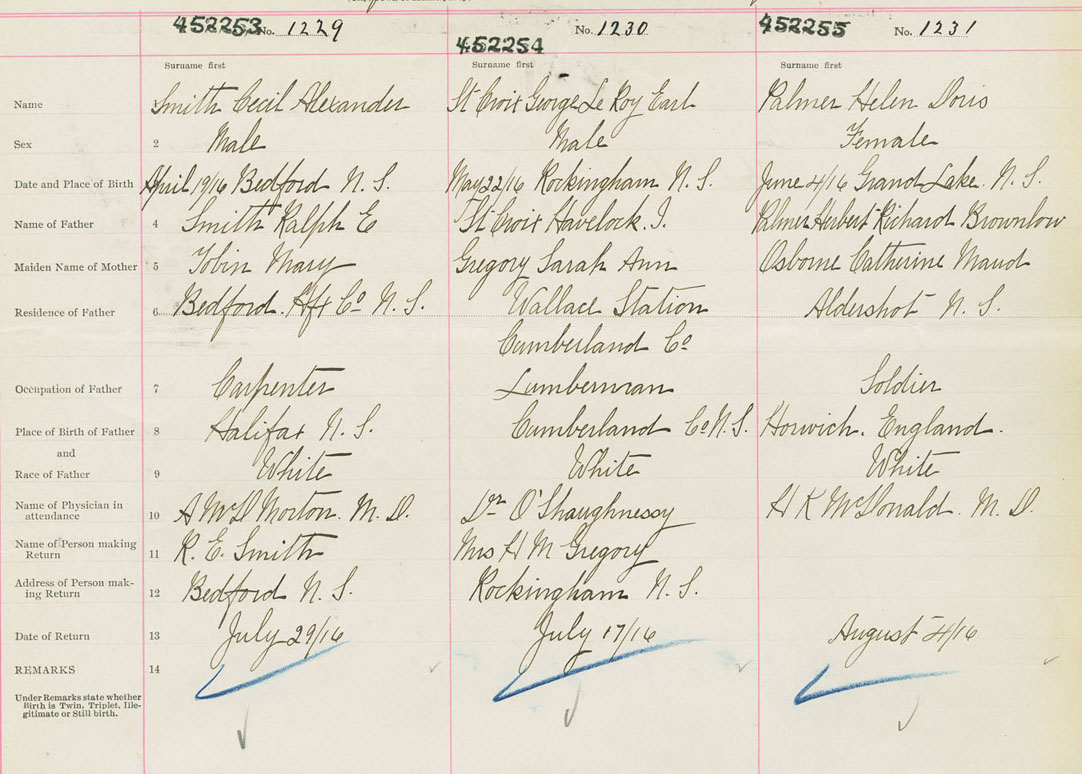 452253 No. 1229
452254 No. 1230
452255 No. 1231
Surname first Surname first Surname first
Name 1 Smith Cecil Alexander St Croix George Le Roy Earl Palmer Helen Doris
Sex 2 Male Male Female
Date and Place of Birth April 19/16 Bedford N. S. May 22/16 Rockingham N. S. June 4/16 Grand Lake. N. S.
Name of Father 4 Smith Ralph E St Croix Havelock. I. Palmer Herbert Richard Brownlow
Maiden Name of Mother 5 Tobin Mary Gregory Sarah Ann Osborne Catherine Maud
Residence of Father 6 Bedford. Hfx Co N. S. Wallace Station Aldershot N. S.
Cumberland Co
Occupation of Father 7 Carpenter Lumberman Soldier
Place of Birth of Father 8 Halifax N. S. Cumberland Co N. S. Horwich. England.
and
Race of Father 9 White White White
Name of Physician in
attendance 10 A McD Morton. M. D. Dr O'Shaughnessy H K McDonald. M. D.
Name of Person making
Return 11 R. E. Smith Mrs H M Gregory
Address of Person mak-
ing Return 12 Bedford N. S. Rockingham N. S.
Date of Return 13 July 29/16 July 17/16 August 4/16
REMARKS 14
Under Remarks state whether
Birth is Twin, Triplet, Ille-
gitimate or Still birth.